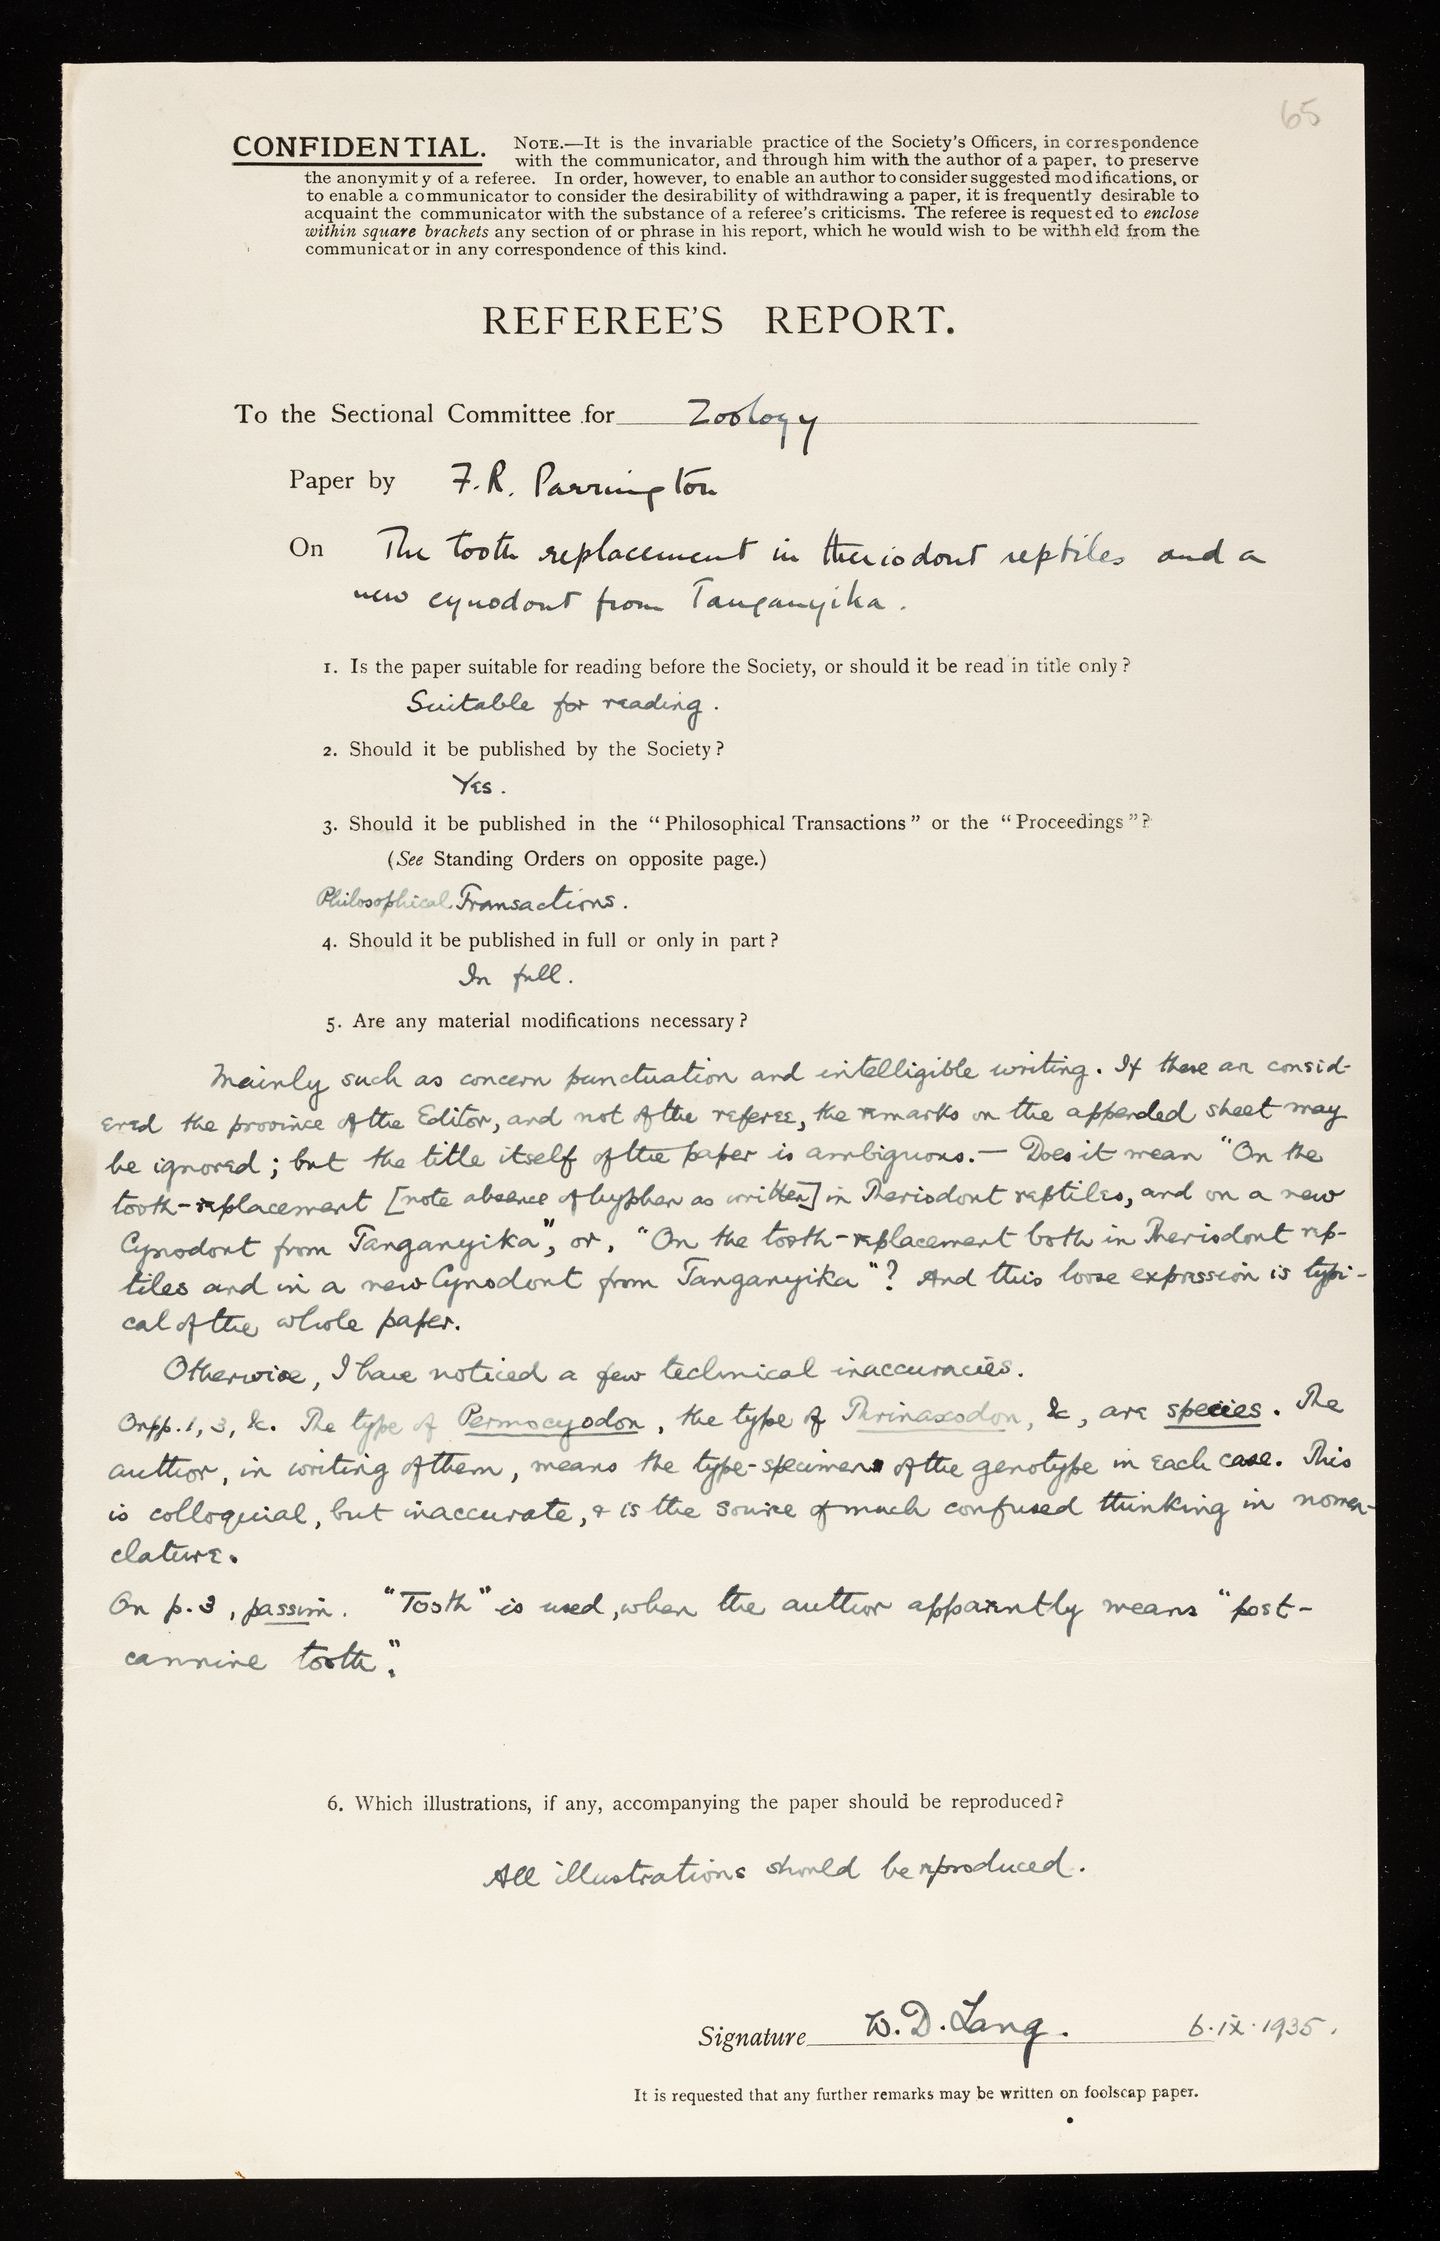 65
CONFIDENTIAL. NOTE.—It is the invariable practice of the Society's Officers, in correspondence
with the communicator, and through him with the author of a paper, to preserve
the anonymity of a referee. In order, however, to enable an author to consider suggested modifications, or
to enable a communicator to consider the desirability of withdrawing a paper, it is frequently desirable to
acquaint the communicator with the substance of a referee's criticisms. The referee is requested to enclose
within square brackets any section of or phrase in his report, which he would wish to be withheld from the
communicator in any correspondence of this kind.
REFEREE'S REPORT.
To the Sectional Committee for Zoology
Paper by F. R. Parrington
On The tooth replacement in theriodont reptiles and a
new cynodont from Tanganyika.
1. Is the paper suitable for reading before the Society, or should it be read in title only?
Suitable for reading.
2. Should it be published by the Society?
Yes.
3. Should it be published in the "Philosophical Transactions" or the "Proceedings"?
(See Standing Orders on opposite page.)
Philosophical Transactions.
4. Should it be published in full or only in part?
In full.
5. Are any material modifications necessary?
Mainly such as concern punctuation and intelligible writing. If these are consid-
ered the province of the Editor, and not of the referee, the remarks on the appended sheet may
be ignored; but the title itself of the paper is ambiguous.— Does it mean "On the
tooth-replacement [note absence of hyphen as written] in Theriodont reptiles, and on a new
Cynodont from Tanganyika", or, "On the tooth-replacement both in Theriodont rep-
tiles and in a new Cynodont from Tanganyika"? And this loose expression is typi-
cal of the whole paper.
Otherwise, I have noticed a few technical inaccuracies.
On pp. 1, 3, &c. The type of Permocyodon, the type of Thrinaxodon, &c, are species. The
author, in writing of them, means the type-specimen of the genotype in each case. This
is colloquial, but inaccurate, & is the source of much confused thinking in nomen-
clature.
On p. 3, passim. "Tooth" is used, when the author apparently means "post-
cannine tooth".
6. Which illustrations, if any, accompanying the paper should be reproduced?
All illustrations should be reproduced.
Signature W. D. Lang. 6.IX.1935.
It is requested that any further remarks may be written on foolscap paper.